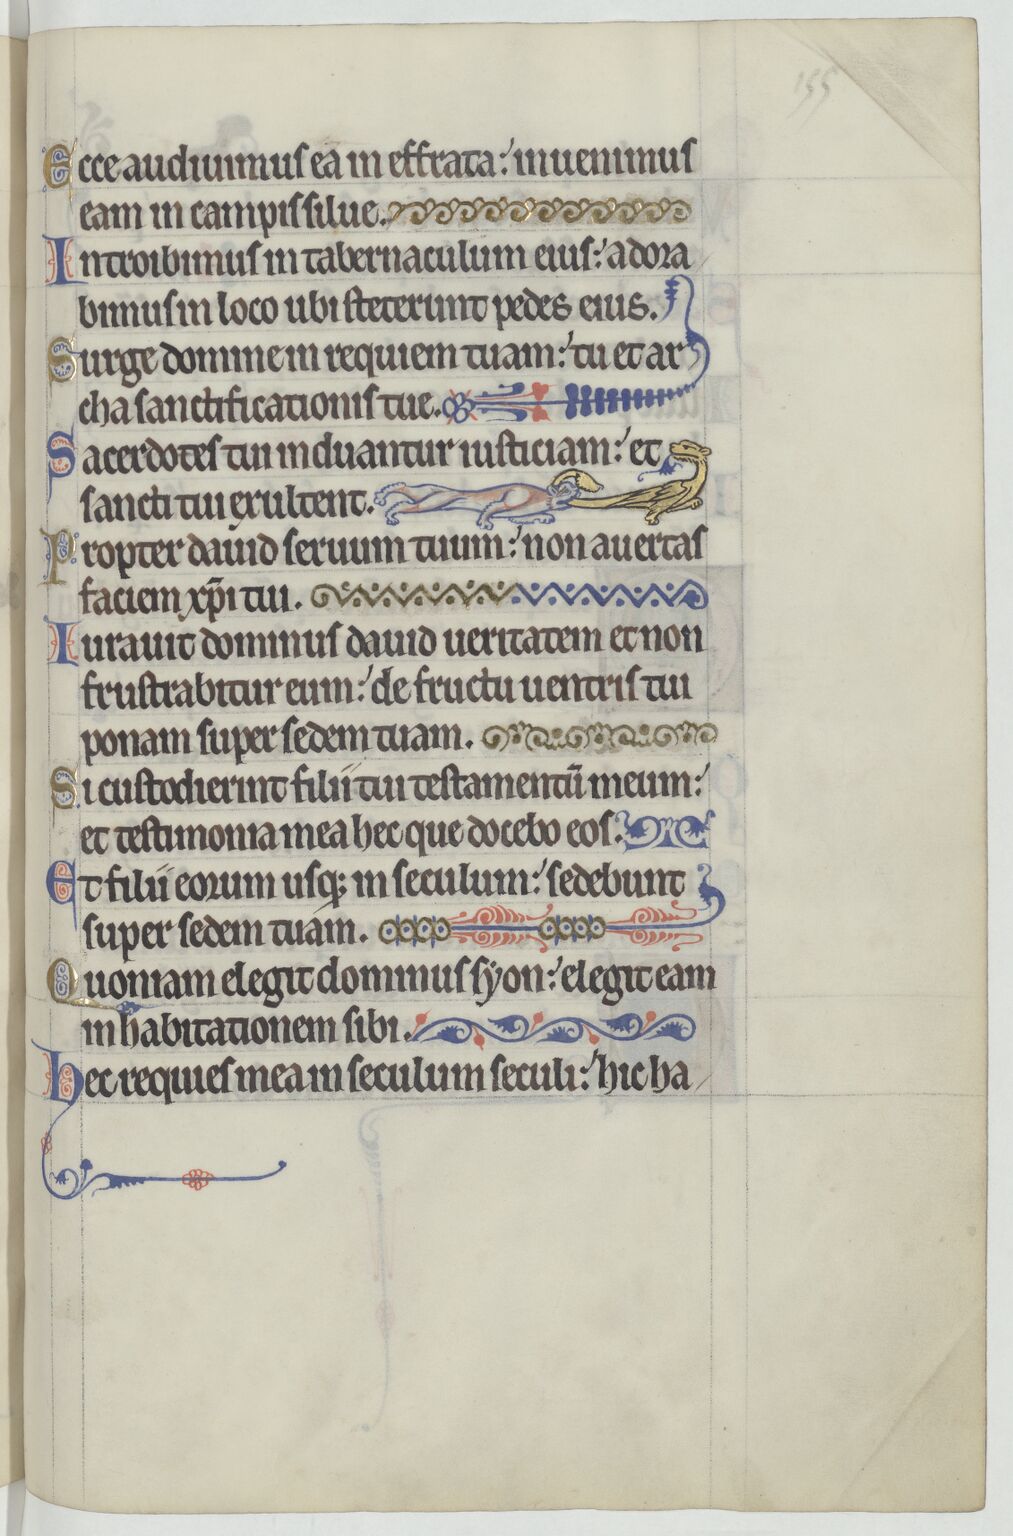 155
Ecce audiuimus ea in effrata: inuenimus
eam in campis silue.
Introibimus in tabernaculum eius: adora
bimus in loco ubi steterunt pedes eius.
Surge domine in requiem tuam: tu et ar
cha sanctificationis tue.
Sacerdotes tui induantur iusticiam: et
sancti tui exultent.
Propter dauid seruum tuum: non auertas
faciem xp̄i tui.
Iurauit dominus dauid ueritatem et non
frustrabitur eum: de fructu uentris tui
ponam super sedem tuam.
Si custodierint filii tui testamentū meum:
et testimonia mea hec que docebo eos.
Et filii eorum usq; in seculum: sedebunt
super sedem tuam.
Quoniam elegit dominus syon: elegit eam
in habitationem sibi.
hec requies mea in seculum seculi: hic ha